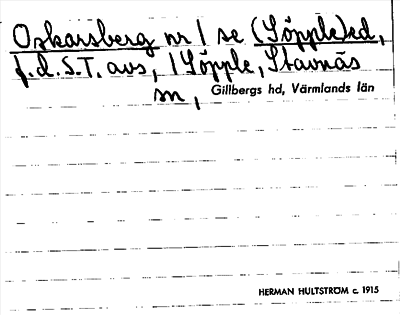 Oskarsberg nr 1 se (Löpple)ed,
f.d.S.T. avs, i Löpple, Stavnäs
sn, Gillbergs hd, Värmlands län
HERMAN HULTSTRÖM c. 1915